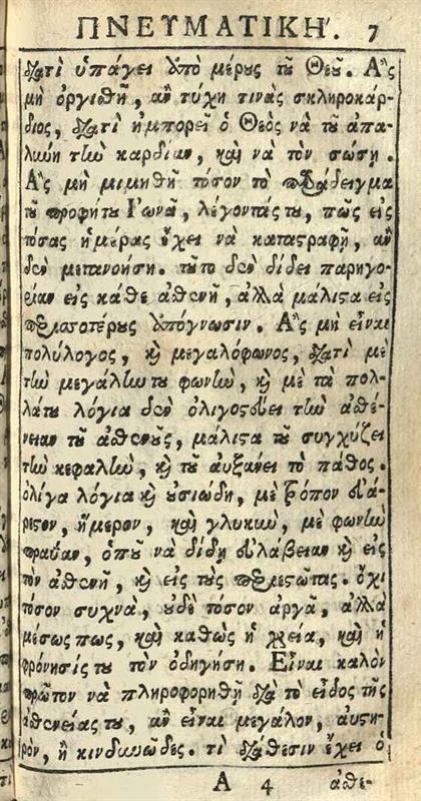 ΠΝΕΥΜΑΤΙΚΗ'. 7
διατὶ ὑπάγει ἀπὸ μέρους τοῦ Θεοῦ. Ἂς
μὴ ὀργισθῇ, ἂν τύχῃ τινὰς σκληροκάρ-
διος, διατὶ ἠμπορεῖ ὁ Θεὸς νὰ τοῦ ἁπα-
λύνῃ τὴν καρδίαν, καὶ νὰ τὸν σώσῃ.
Ἂς μὴ μιμηθῇ τόσον τὸ παράδειγμα
τοῦ προφήτου Ἰωνᾶ, λέγοντάς του, πῶς εἰς
τόσας ἡμέρας ἔχει νὰ καταστραφῇ, ἂν
δὲν μετανοήσῃ. τοῦτο δὲν δίδει παρηγο-
ρίαν εἰς κάθε ἀσθενῆ, ἀλλὰ μάλιστα εἰς
περισσοτέρους ἀπόγνωσιν. Ἂς μὴ εἶναι
πολύλογος, καὶ μεγαλόφωνος, διατὶ μὲ
τὴν μεγάλην του φωνὴν, καὶ μὲ τὰ πολ-
λάτου λόγια δὲν ὀλιγοστεύει τὴν ἀσθέ-
νειαν τοῦ ἀσθενοῦς, μάλιστα τοῦ συγχύζει
τὴν κεφαλὴν, καὶ τοῦ αὐξαίνει τὸ πάθος.
ὀλίγα λόγια καὶ οὐσιώδη, μὲ τρόπον εὐά-
ρεστον, ἥμερον, καὶ γλυκὺν, μὲ φωνὴν
πραεῖαν, ὁποῦ νὰ δίδῃ εὐλάβειαν καὶ εἰς
τὸν ἀσθενῆ, καὶ εἰς τοὺς παρεστῶτας. ὄχι
τόσον συχνὰ, οὐδὲ τόσον ἀργὰ, ἀλλὰ
μέσως πως, καὶ καθὼς ἡ χρεία, καὶ ἡ
φρόνησίς του τὸν ὁδηγήσῃ. Εἶναι καλὸν
πρῶτον νὰ πληροφορηθῇ διὰ τὸ εἶδος τῆς
ἀσθενείας του, ἂν εἶναι μεγάλον, αὐστη-
ρὸν, ἢ κινδυνῶδες. τὶ διάθεσιν ἔχει ὁ
A 4 ἀσθε-